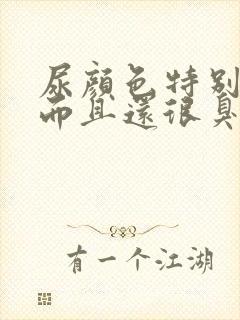 尿顏色特别
而且還很臭
有一个江湖